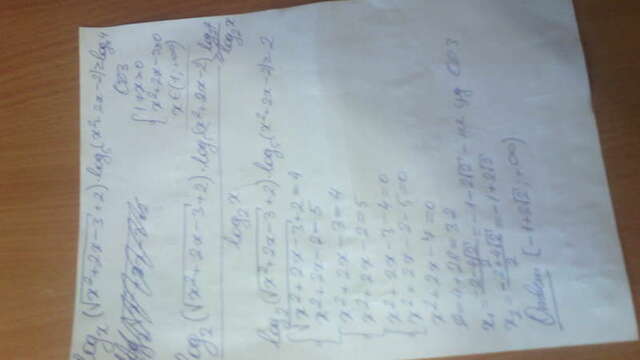 log_x (√x²+2x-3+2)·log₅(x²+2x-2)≥log_x 4
ОДЗ
{ 1≠x>0
x²+2x-3≥0
x∈(1;+∞)
log₂(√x²+2x-3+2)·log₅(x²+2x-2) ≥ log₂4
log₂x log₂x
log₂(√x²+2x-3+2)·log₅(x²+2x-2)≥2
{ √x²+2x-3+2=4
x²+2x-2=5
{ x²+2x-3=4
x²+2x-2=5
{ x²+2x-3-4=0
x²+2x-2-5=0
x²+2x-7=0
x₁=(-2-4√2)/2=-1-2√2 - не уд ОДЗ
x₂=(-2+4√2)/2=-1+2√2
Ответ [-1+2√2;+∞)